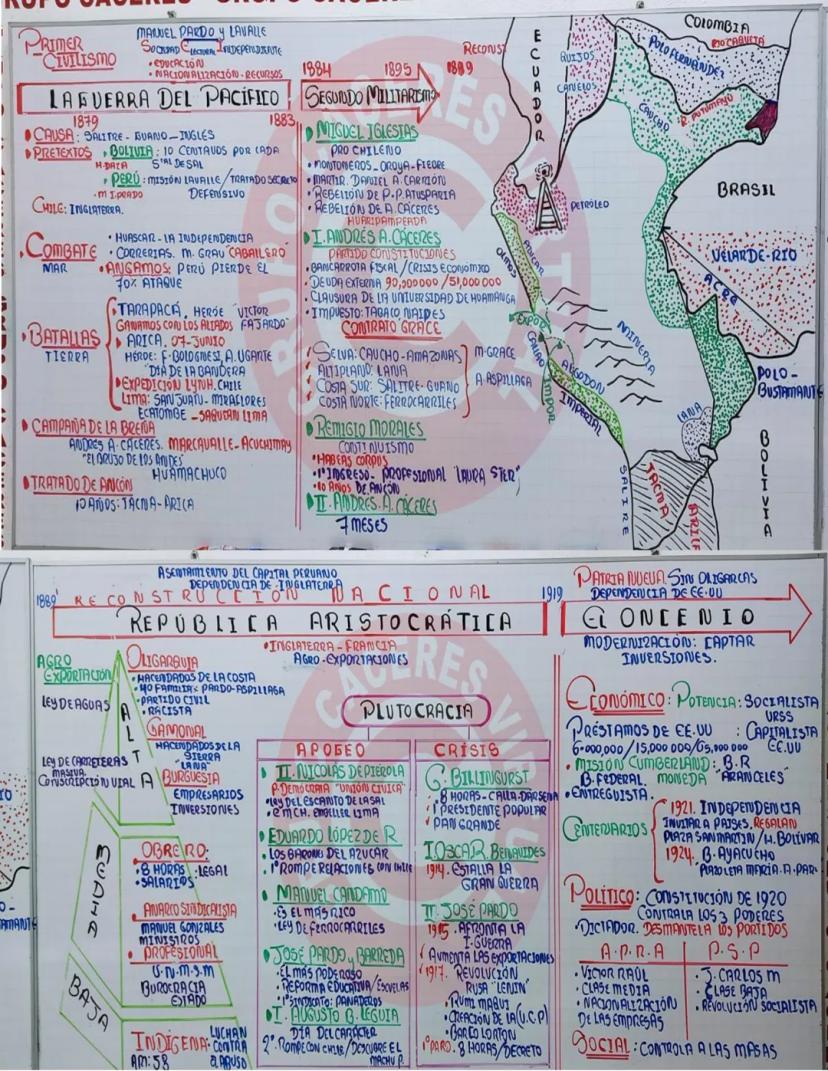 PRIMER
CIVILISMO
MANUEL PARDO Y LAVALLE
SOCIEDAD ELECTORAL INDEPENDIENTE
• EDUCACIÓN
• NACIONALIZACIÓN-RECURSOS
LA GUERRA DEL PACÍFICO
1879 1883
CAUSA: SALITRE - GUANO - INGLÉS
PRETEXTOS • BOLIVIA: 10 CENTAVOS POR CADA
H. DAZA QTAL DE SAL
• PERÚ: MISIÓN LAVALLE/TRATADO SECRETO
M. I. PRADO DEFENSIVO
CHILE: INGLATERRA.
COMBATE
MAR
• HUASCAR - LA INDEPENDENCIA
• CORRERIAS. M. GRAU "CABALLERO"
• ANGAMOS: PERÚ PIERDE EL
70% ATAQUE
BATALLAS
TIERRA
TARAPACÁ, HERÓE "VICTOR
GANAMOS CON LOS ALIADOS FAJARDO"
ARICA. 07-JUNIO
HÉROE: F. BOLOGNESI, A. UGARTE
"DÍA DE LA BANDERA
EXPEDICIÓN LYNH. CHILE
LIMA: SAN JUAN - MIRAFLORES
ECATOMBE - SAQUEAN LIMA
CAMPAÑA DE LA BREÑA
ANDRES A. CÁCERES. MARCAVALLE-ACUCHIMAY
"EL BRUJO DE LOS ANDES"
HUAMACHUCO
TRATADO DE ANCÓN
10 AÑOS: TACNA - ARICA
1884 1895 1889
RECONST
SEGUNDO MILITARISMO
MIGUEL IGLESIAS
PRO CHILENO
• MONTONEROS - OROYA - FIEBRE
• MARTIR. DANIEL A. CARRIÓN
• REBELIÓN DE P.P. ATUSPARIA
• REBELIÓN DE A. CÁCERES
HUARIPAMPEADA
I. ANDRÉS A. CÁCERES
PARTIDO CONSTITUCIONES
• BANCARROTA FISCAL/CRISIS ECONÓMICO
• DEUDA EXTERNA 90,000000/51,000000
• CLAUSURA DE LA UNIVERSIDAD DE HUAMANGA
• IMPUESTO: TABACO NAIPES
CONTRATO GRACE
SELVA: CAUCHO-AMAZONAS
ALTIPLANO: LANA
COSTA SUR: SALITRE - GUANO
COSTA NORTE: FERROCARRILES
M. GRACE
A. ASPILLAGA
REMIGIO MORALES
CONTINUISMO
• HABEAS CORPUS
• 1º INGRESO - PROFESIONAL "LAURA STER"
• 10 AÑOS DE ANCÓN
II. ANDRES. A. CÁCERES
7 MESES
ECUADOR
QUIJOS
CANELOS
COLOMBIA
POLO FERNÁNDEZ
CAUCHO
R. PUTUMAYO
BRASIL
PETRÓLEO
VELARDE-RIO
ACRE
OLMOS
AZÚCAR
EXPORT
CALLAO
MINERIA
ALGODÓN
IMPERIAL
POLO-
BUSTAMANTE
LANA
SALITRE
TACNA
ARICA
BOLIVIA
ASENTAMIENTO DEL CAPITAL PERUANO
DEPENDENCIA DE INGLATERRA
1889 RECONSTRUCCIÓN NACIONAL 1919
REPÚBLICA ARISTOCRÁTICA
• INGLATERRA - FRANCIA
AGRO-EXPORTACIONES
AGRO
EXPORTACIÓN
LEY DE AGUAS
LEY DE CARRETERAS
MASIVA
CONSCRIPCIÓN VIAL
ALTA
OLIGARQUIA
• HACENDADOS DE LA COSTA
• 40 FAMILIAS: PARDO-ASPILLAGA
• PARTIDO CIVIL
• RACISTA
GAMONAL
HACENDADOS DE LA
SIERRA
"LANA"
BURGUESIA
EMPRESARIOS
INVERSIONES
MEDIA
OBRERO:
• 8 HORAS - LEGAL
• SALARIOS
• ANARCO SINDICALISTA
MANUEL GONZALES
MINISTROS
• PROFESIONAL
U.N.M.S.M
BUROCRACIA
ESTADO
BAJA
INDÍGENA: LUCHAN
CONTRA
ART: 58 EL ABUSO
PLUTOCRACIA
APOGEO
II. NICOLAS DE PIEROLA
P. DEMÓCRATA "UNIÓN CIVICA"
• LEY DEL ESCANTO DE LA SAL
EDUARDO LÓPEZ DE R
• LOS BARONES DEL AZUCAR
• 1º ROMPE RELACIONES CON CHILE
MANUEL CANDAMO
• ES EL MÁS RICO
• LEY DE FERROCARRILES
JOSÉ PARDO Y BARREDA
• EL MÁS PODEROSO
• REFORMA EDUCATIVA/ESCUELAS
• 1º SINDICATO: PANADEROS
I. AUGUSTO B. LEGUIA
DÍA DEL CARÁCTER
2º ROMPE CON CHILE/DESCUBRE EL
MACHU P.
CRÍSIS
G. BILLINGURST
• 8 HORAS - CALLA-DARSENA
• PRESIDENTE POPULAR
• PAN GRANDE
I OSCAR. BENAVIDES
1914. ESTALLA LA
GRAN GUERRA
II. JOSÉ PARDO
1915. AFRONTA LA
I. GUERRA
AUMENTA LAS EXPORTACIONES
1917. REVOLUCIÓN
RUSA "LENIN"
• RUMI MAQUI
• CREACIÓN DE LA (U.C.P)
• BARCO LORTON
1º PARO: 8 HORAS/DECRETO
PATRIA NUEVA. SIN OLIGARCAS
DEPENDENCIA DE EE.UU
EL ONCENIO
MODERNIZACIÓN: CAPTAR
INVERSIONES.
ECONÓMICO: POTENCIA: SOCIALISTA
URSS
PRÉSTAMOS DE EE.UU : CAPITALISTA
6.000,000/15,000 000/65,000 000 EE.UU
• MISIÓN CUMBERLAND: B.R
B. FEDERAL. MONEDA "ARANCELES"
• ENTREGUISTA.
CENTENARIOS
1921. INDEPENDENCIA
INVITAR A PAISES. REGALAN
PLAZA SAN MARTIN / H. BOLÍVAR
1924. B. AYACUCHO
PLAZOLETA MARÍA. A. PAR.
POLÍTICO: CONSTITUCIÓN DE 1920
CONTRALA LOS 3 PODERES
• DICTADOR. DESMANTELA LOS PARTIDOS
A.P.R.A
• VICTOR RAÚL
• CLASE MEDIA
• NACIONALIZACIÓN
DE LAS EMPRESAS
P.S.P
• J. CARLOS M
• CLASE BAJA
• REVOLUCIÓN SOCIALISTA
SOCIAL: CONTROLA A LAS MASAS